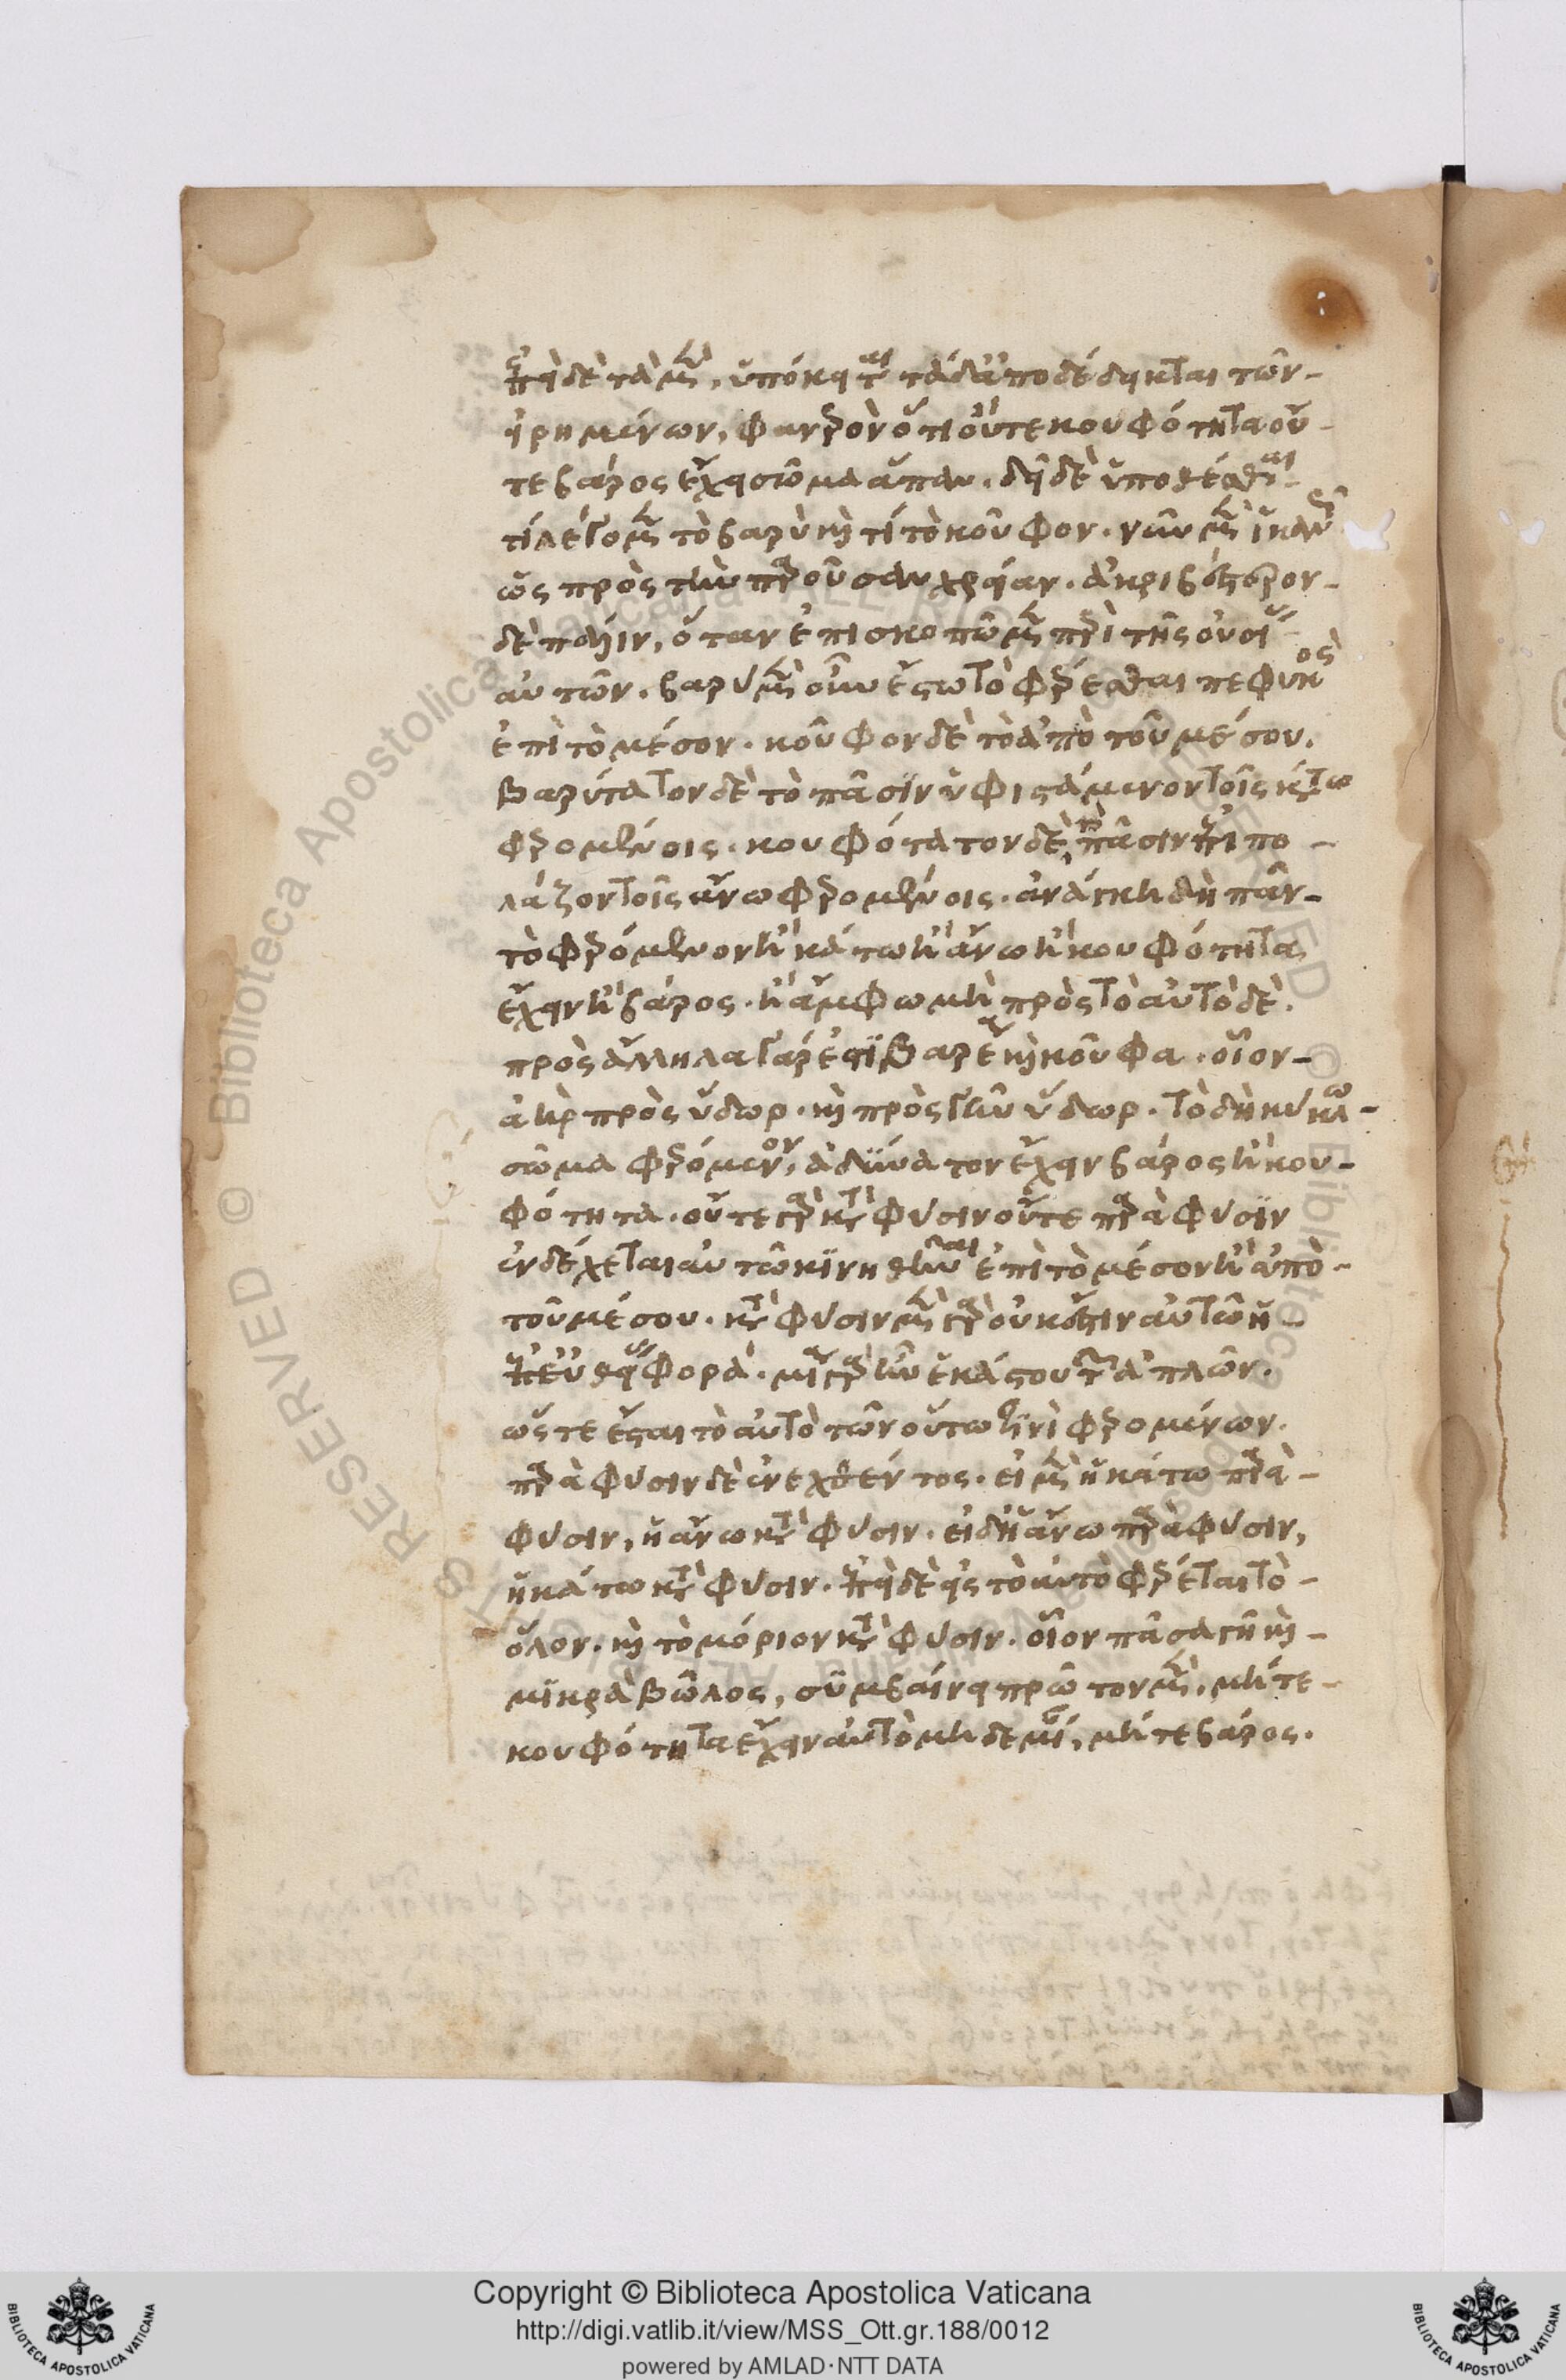 ἐπεὶ δὲ τὰ μὲν ὑπόκειται τὰ δ' ἀποδέδεικται τῶν
εἰρημένων, φανερὸν ὅτι οὔτε κουφότητα οὔ
τε βάρος ἔχει σῶμα ἅπαν. δεῖ δὲ ὑποθέσθαι
τί λέγομεν τὸ βαρὺ καὶ τί τὸ κοῦφον. νῦν μὲν ἱκανῶς
ὡς πρὸς τὴν παροῦσαν χρείαν. ἀκριβέστερον
δὲ πάλιν, ὅταν ἐπισκοπῶμεν περὶ τῆς οὐσίας
αὐτῶν. βαρὺ μὲν οὖν ἔστω τὸ φέρεσθαι πεφυκὸς
ἐπὶ τὸ μέσον. κοῦφον δὲ τὸ ἀπὸ τοῦ μέσου.
βαρύτατον δὲ τὸ πᾶσιν ὑφιστάμενον τοῖς κάτω
φερομένοις. κουφότατον δὲ τὸ πᾶσιν ἐπιπο
λάζον τοῖς ἄνω φερομένοις. ἀνάγκη δὴ πᾶν
τὸ φερόμενον ἢ κάτω ἢ ἄνω ἢ κουφότητα
ἔχειν ἢ βάρος. ἢ ἄμφω μὴ πρὸς τὸ αὐτὸ δὲ.
πρὸς ἄλληλα γάρ ἐστι βαρέα καὶ κοῦφα. οἷον
ἀὴρ πρὸς ὕδωρ. καὶ πρὸς γῆν ὕδωρ. τὸ δὴ κύκλω
σῶμα φερόμενον, ἀδύνατον ἔχειν βάρος ἢ κου
φότητα. οὔτε γὰρ κατὰ φύσιν οὔτε παρὰ φύσιν
ἐνδέχεται αὐτῶ κινηθῆναι ἐπὶ τὸ μέσον ἢ ἀπὸ
τοῦ μέσου. κατὰ φύσιν μὲν γὰρ οὐκ ἔστιν αὐτῶ ἡ
ἐπ' εὐθείας φορά. μία γὰρ ἦν ἑκάστου τῶν ἁπλῶν.
ὥστε ἔσται τὸ αὐτὸ τῶν οὕτω τινὶ φερομένων.
παρὰ φύσιν δὲ ἐνεχθέντος. εἰ μὲν ἡ κάτω παρὰ
φύσιν, ἡ ἄνω κατὰ φύσιν. εἰ δ' ἡ ἄνω παρὰ φύσιν,
ἡ κάτω κατὰ φύσιν. ἐπεὶ δὲ εἰς τὸ αὐτὸ φέρεται τὸ
ὅλον. καὶ τὸ μόριον κατὰ φύσιν. οἷον πᾶσα γῆ καὶ
μικρὰ βῶλος, συμβαίνει πρῶτον μὲν, μήτε
κουφότητα ἔχειν αὐτὸ μηδεμίαν, μήτε βάρος.
Copyright © Biblioteca Apostolica Vaticana
http://digi.vatlib.it/view/MSS_Ott.gr.188/0012
powered by AMLAD·NTT DATA
BIBLIOTECA APOSTOLICA VATICANA
BIBLIOTECA APOSTOLICA VATICANA